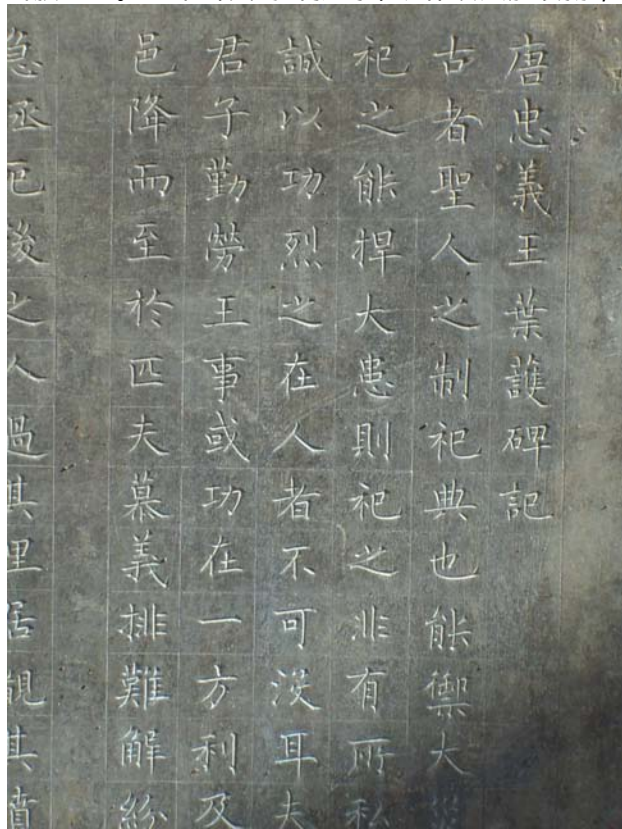 唐忠義王葉護碑記
古者聖人之制祀典也能禦大
祀之能捍大患則祀之非有所私
誠以功烈之在人者不可沒耳夫
君子勤勞王事或功在一方利及
邑降而至於匹夫慕義排難解紛
急拯厄後之人過其里居覩其墳